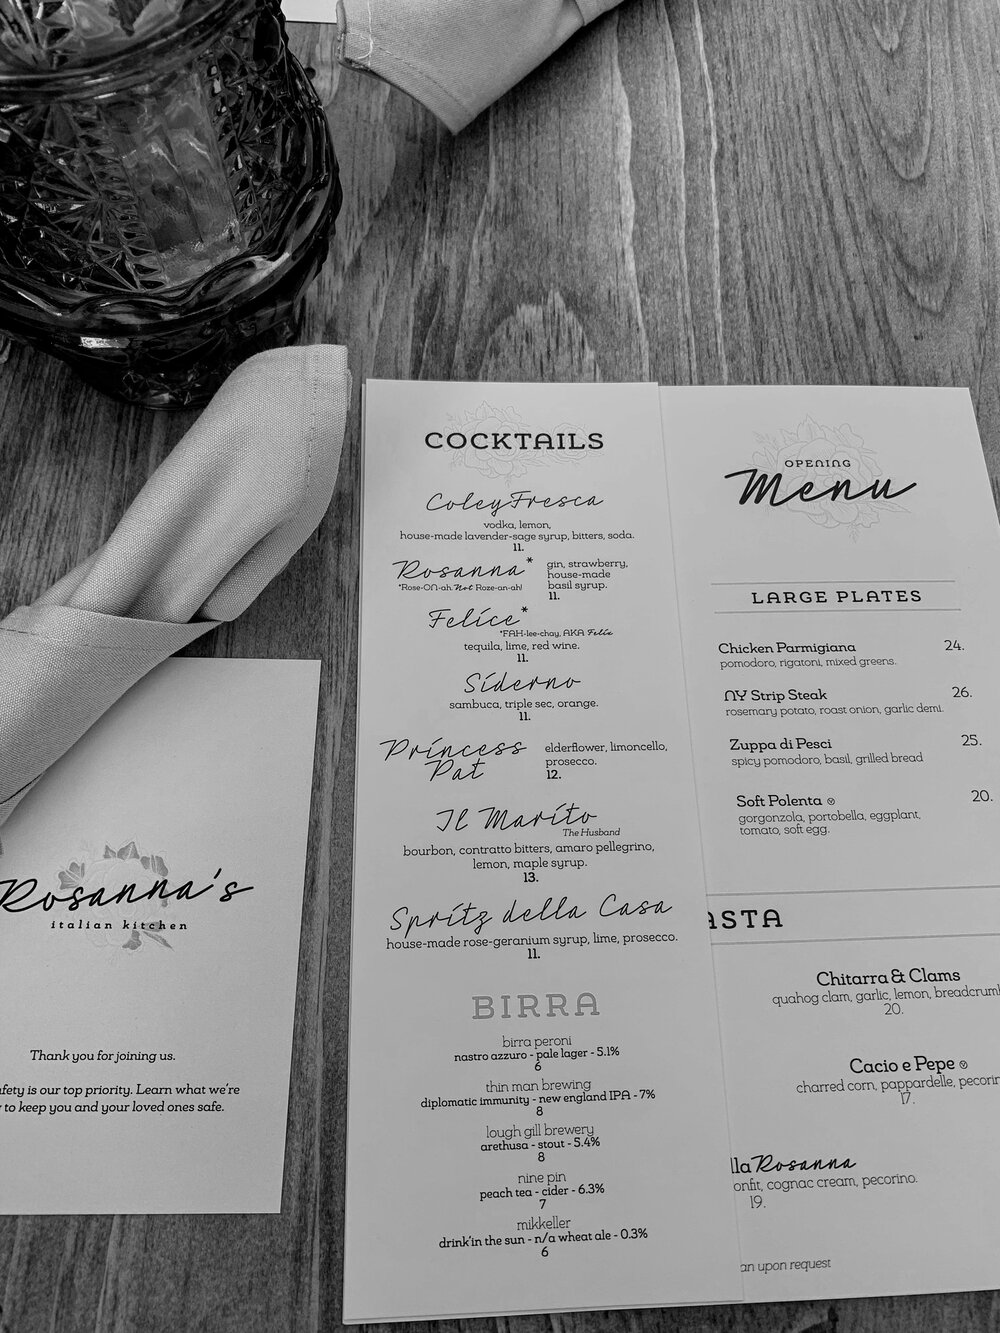 COCKTAILS
Coley Fresca
vodka, lemon,
house-made lavender-sage syrup, bitters, soda.
11.
Rosanna*
*Rose-ON-ah. Not Roze-an-ah!
gin, strawberry,
house-made
basil syrup.
11.
Felice*
*FAH-lee-chay, AKA Felix
tequila, lime, red wine.
11.
Siderno
sambuca, triple sec, orange.
11.
Princess
Pat
elderflower, limoncello,
prosecco.
12.
Il Marito
The Husband
bourbon, contratto bitters, amaro pellegrino,
lemon, maple syrup.
13.
Spritz della Casa
house-made rose-geranium syrup, lime, prosecco.
11.
BIRRA
birra peroni
nastro azzuro - pale lager - 5.1%
6
thin man brewing
diplomatic immunity - new england IPA - 7%
8
lough gill brewery
arethusa - stout - 5.4%
8
nine pin
peach tea - cider - 6.3%
7
mikkeller
drink'in the sun - n/a wheat ale - 0.3%
6
OPENING
Menu
LARGE PLATES
Chicken Parmigiana 24.
pomodoro, rigatoni, mixed greens.
NY Strip Steak 26.
rosemary potato, roast onion, garlic demi.
Zuppa di Pesci 25.
spicy pomodoro, basil, grilled bread
Soft Polenta V 20.
gorgonzola, portobella, eggplant,
tomato, soft egg.
ASTA
Chitarra & Clams
quahog clam, garlic, lemon, breadcrumb
20.
Cacio e Pepe V
charred corn, pappardelle, pecorin
17.
lla Rosanna
onfit, cognac cream, pecorino.
19.
an upon request
Rosanna's
italian kitchen
Thank you for joining us.
fety is our top priority. Learn what we're
to keep you and your loved ones safe.